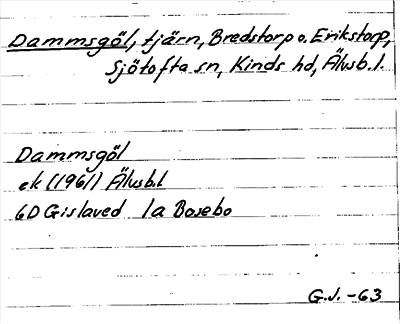 Dammsgöl, tjärn, Bredstorp o. Erikstorp,
Sjötofta sn, Kinds hd, Älvsb. l.
Dammsgöl
ek (1961) Älvsb.l
6D Gislaved 1a Bosebo
G.J. -63